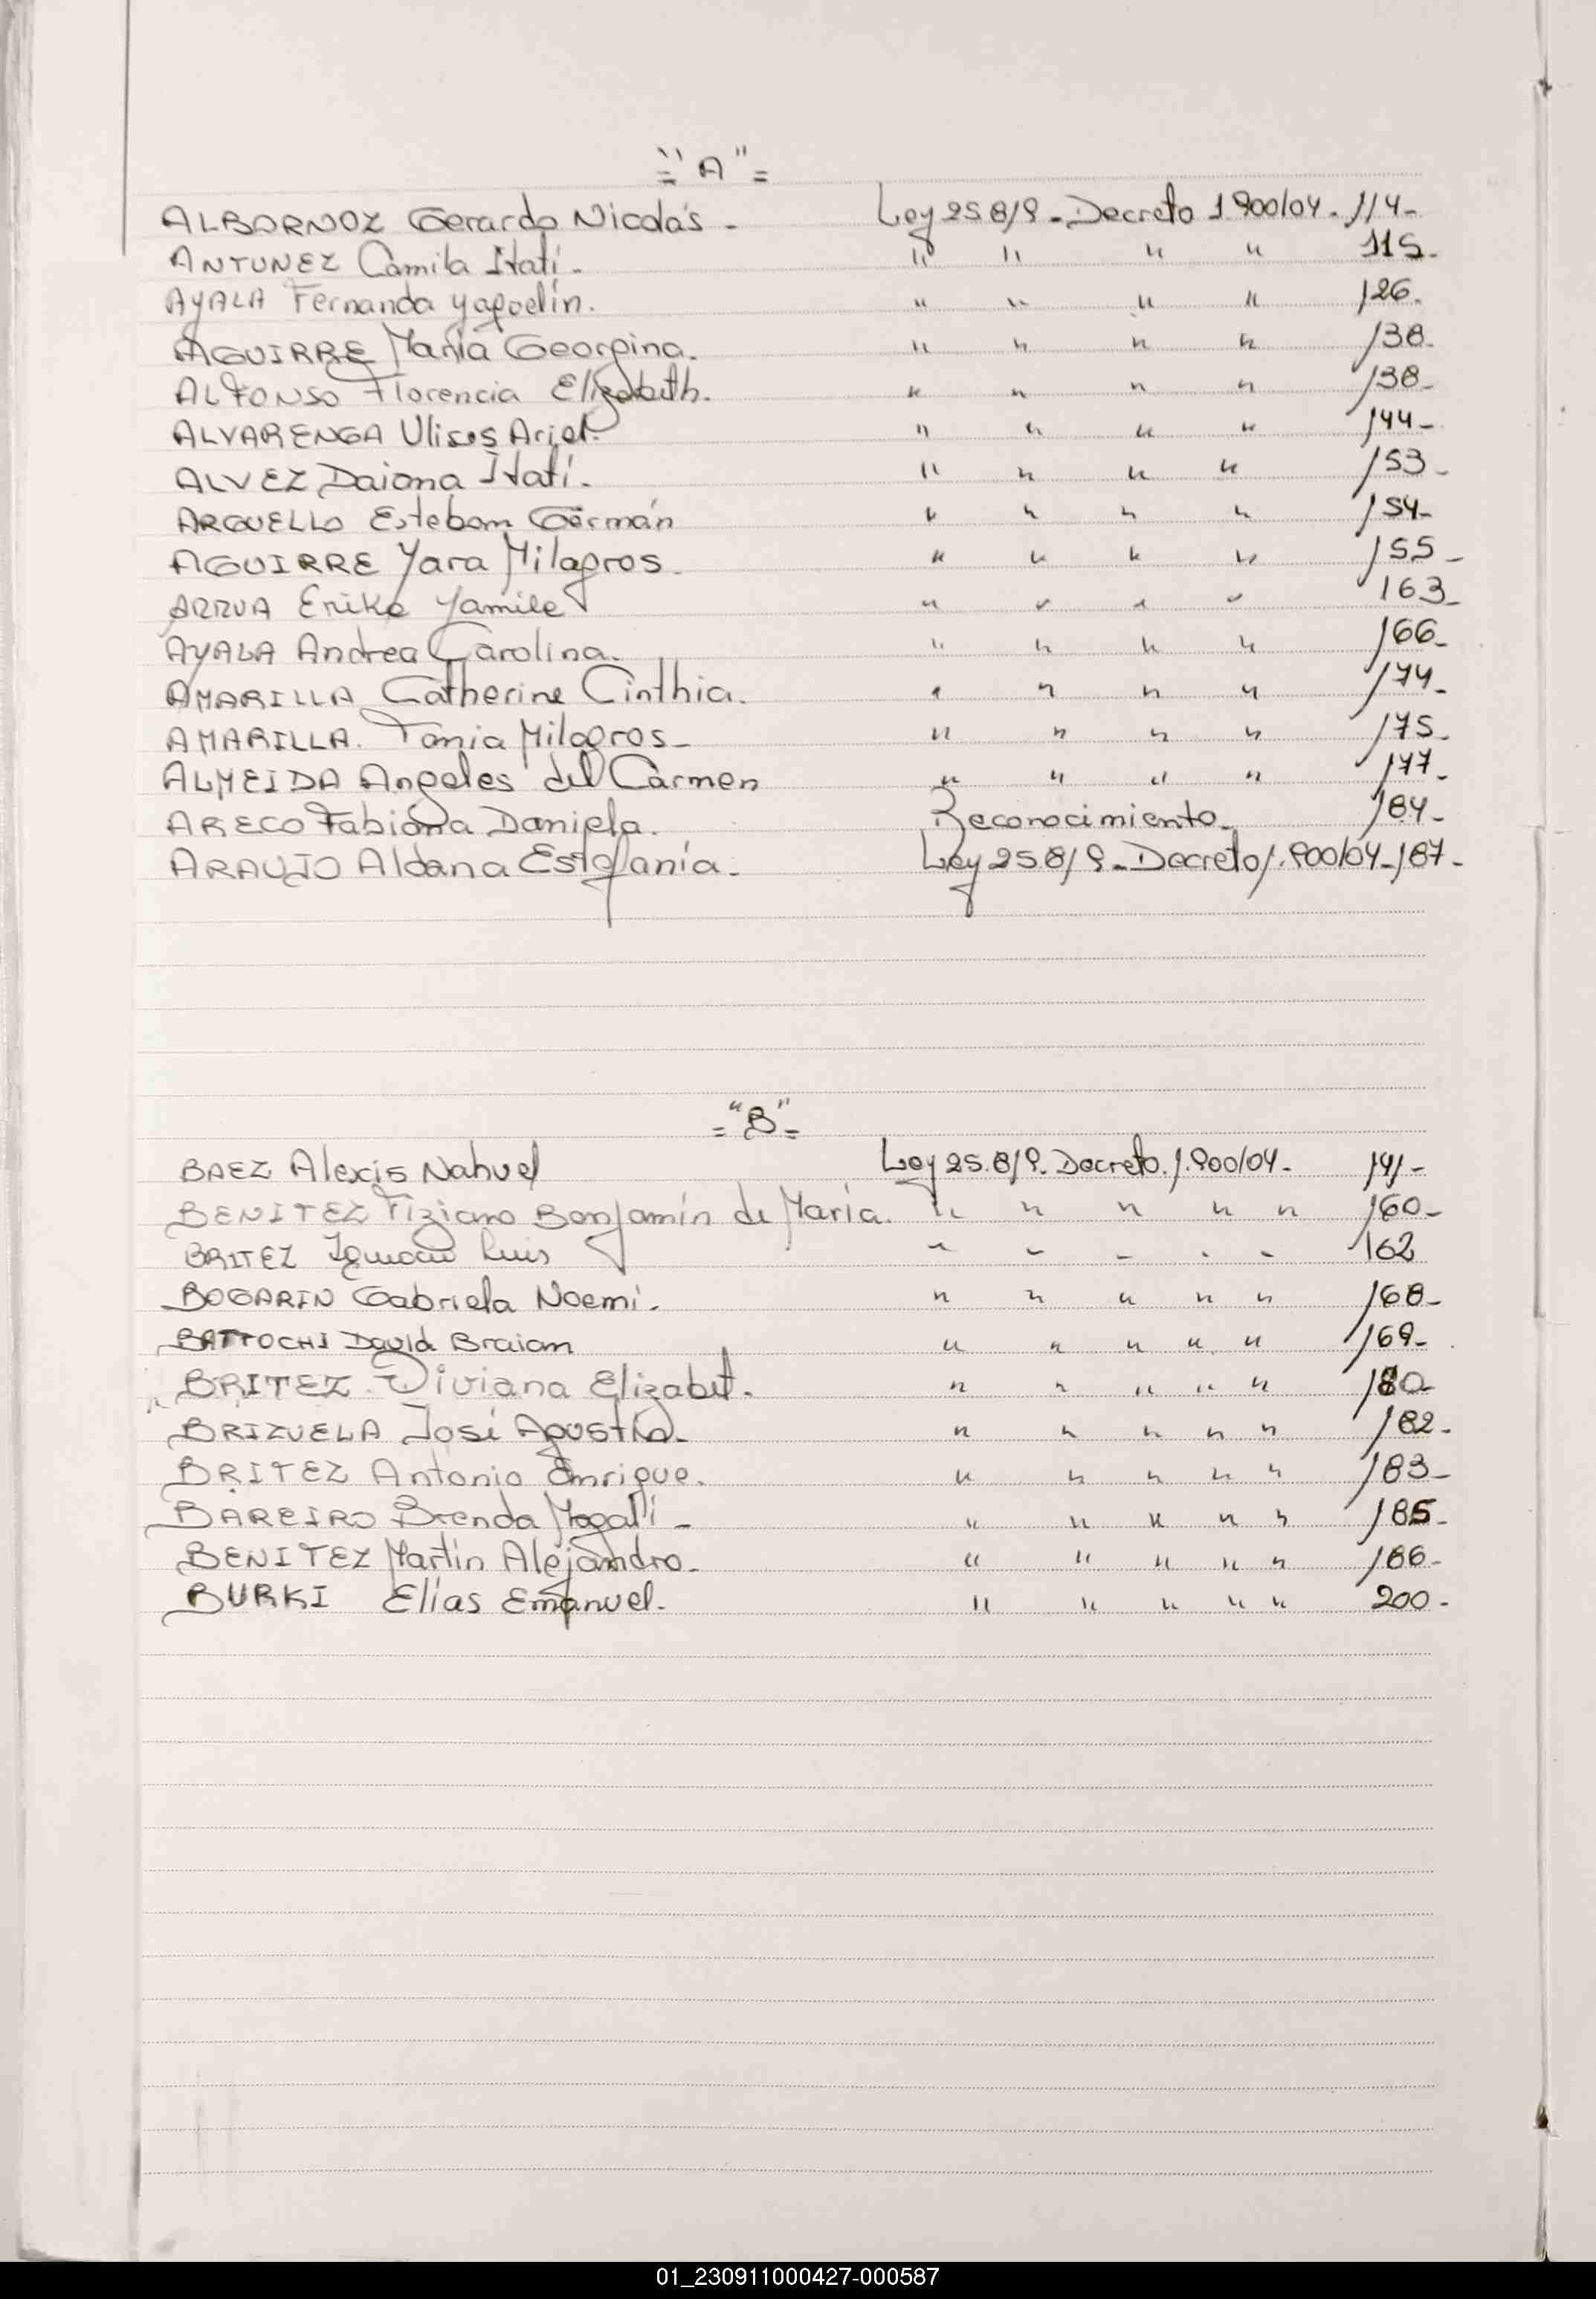 ="A"=
ALBORNOZ Gerardo Nicolás - Ley 25.819 - Decreto 1.900/04. 114-
ANTUNEZ Camila Itatí - " " " " 115-
AYALA Fernanda yaqoelín. " " " " 126.
AGUIRRE María Georgina. " " " " 138-
ALFONSO Florencia Elizabeth. " " " " 138-
ALVARENGA Ulises Ariel- " " " " 144-
ALVEZ Daiana Itatí. " " " " 153-
ARGUELLO Esteban Germán " " " " 154-
AGUIRRE Yara Milagros. " " " " 155-
ARRUA Erika Yamile " " " " 163-
AYALA Andrea Carolina. " " " " 166-
AMARILLA Catherine Cinthia. " " " " 174-
AMARILLA. Tania Milagros- " " " " 175-
ALMEIDA Angeles del Carmen " " " " 177-
ARECO Fabiana Daniela. Reconocimiento- 184-
ARAUJO Aldana Estefanía. Ley 25.819 - Decreto 1.900/04- 187-
="B"=
BAEZ Alexis Nahuel Ley 25.819. Decreto. 1.900/04- 141-
BENITEZ Tiziano Benjamín de María. " " " " " 160-
BRITEZ Luis " " " " " 162
BOGARIN Gabriela Noemí. " " " " " 168-
BATTOCHI David Braian " " " " " 169-
BRITEZ Viviana Elizabet. " " " " " 180-
BRIZUELA José Agustín- " " " " " 182-
BRITEZ Antonio Enrique. " " " " " 183-
BAREIRO Brenda Magalí - " " " " " 185-
BENITEZ Martín Alejandro- " " " " " 186-
BURKI Elías Emanuel. " " " " " 200-
01_230911000427-000587